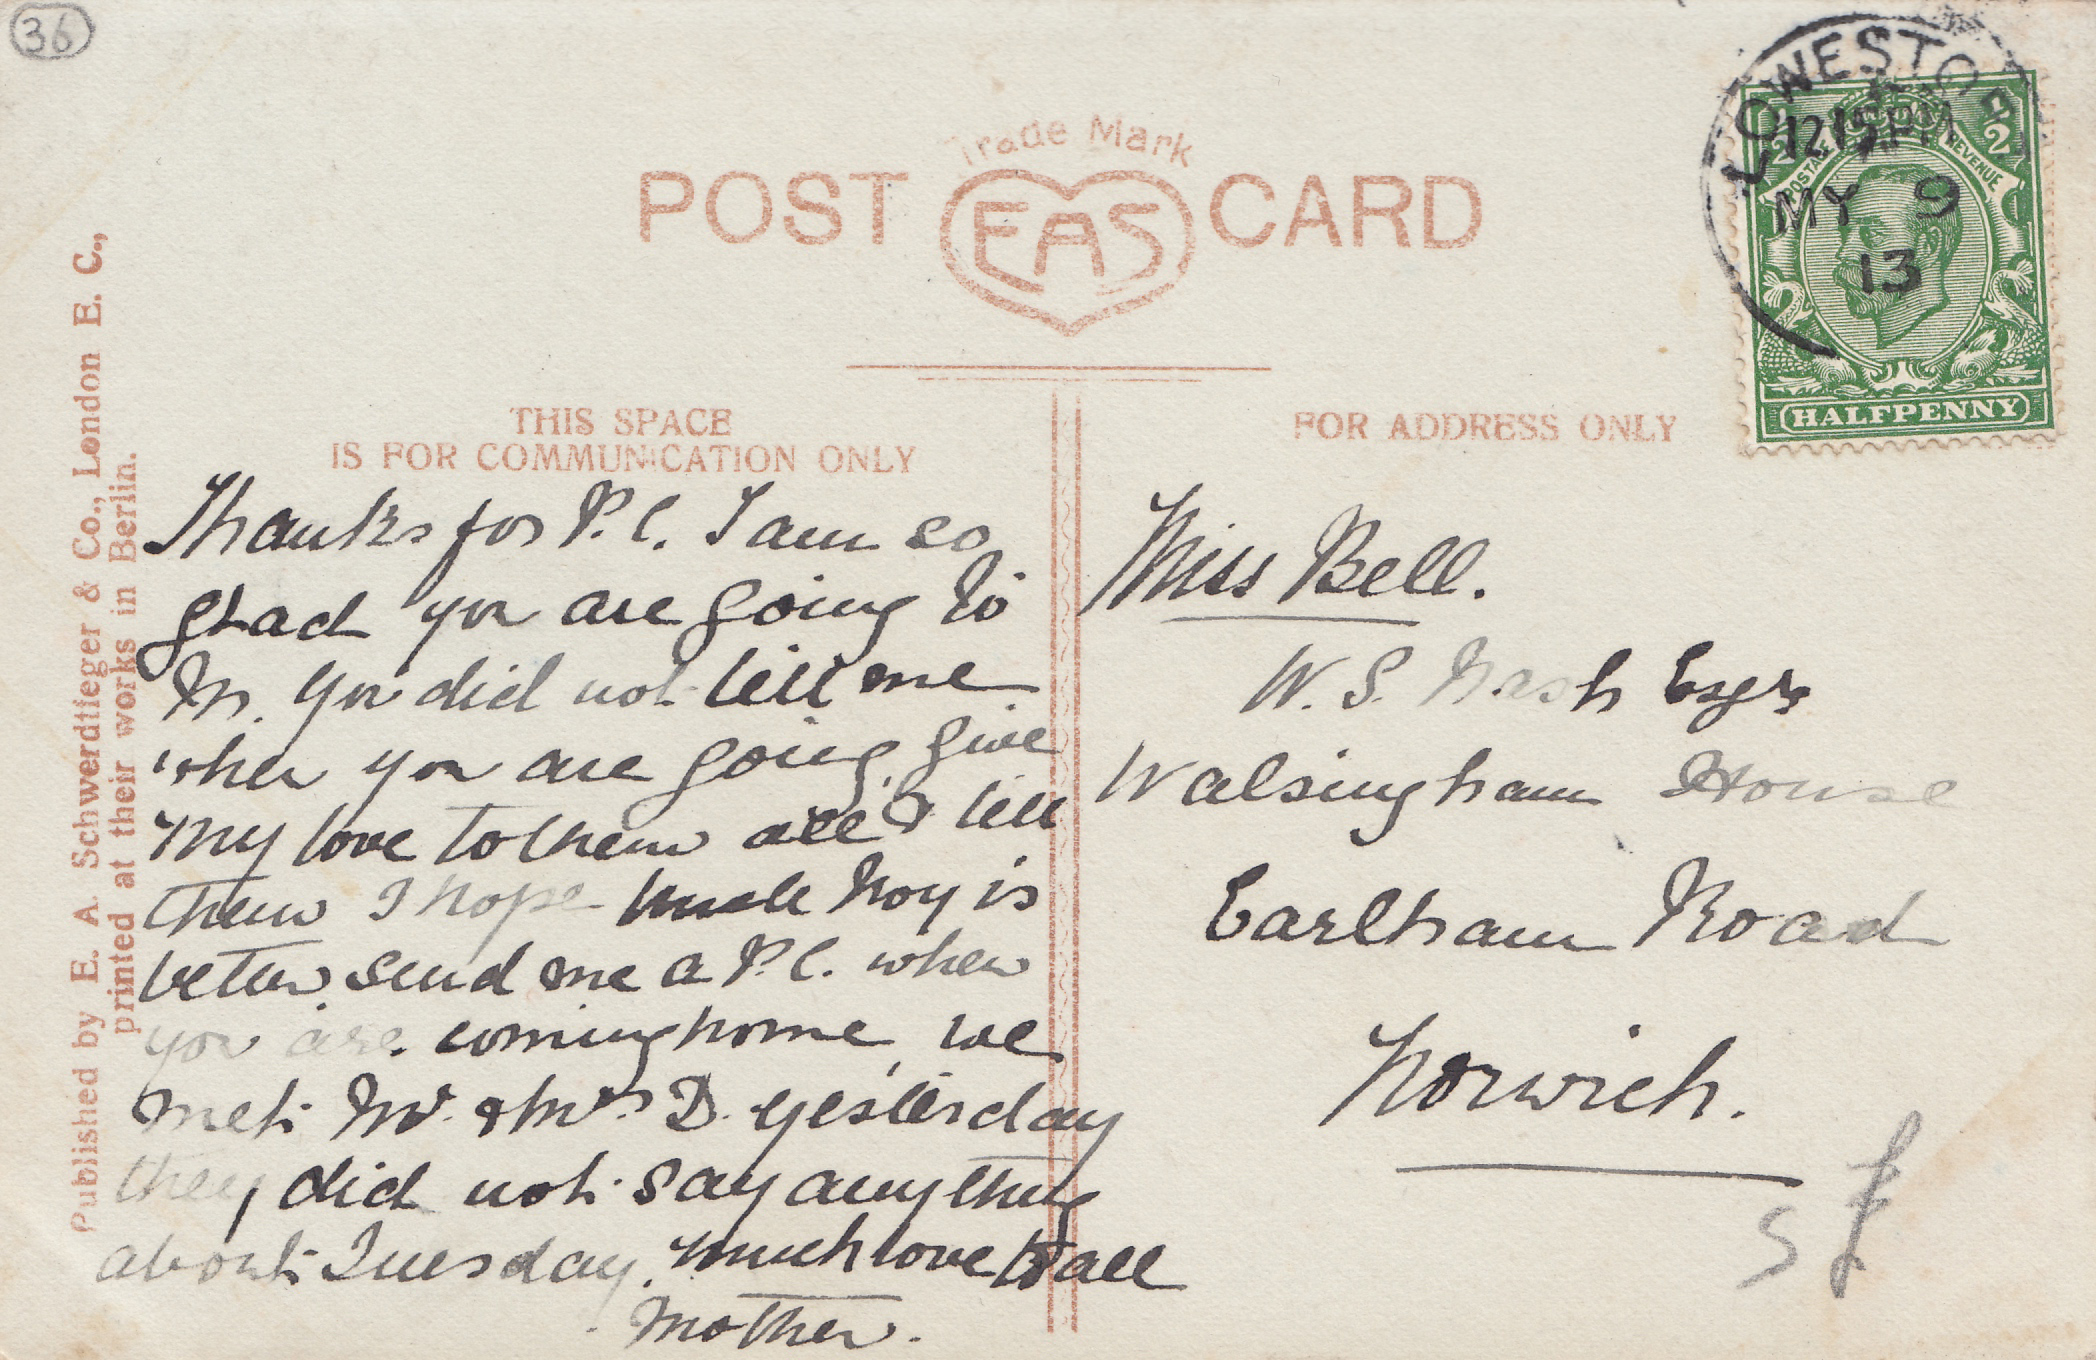 36
Trade Mark
POST EAS CARD
LOWESTOF
12 15 PM
MY 9
13
POSTAGE REVENUE
1/2 1/2
HALFPENNY
THIS SPACE
IS FOR COMMUNICATION ONLY
FOR ADDRESS ONLY
Published by E. A. Schwerdtfeger & Co., London E. C.,
printed at their works in Berlin.
Thanks for P.C. I am so
glad you are going to
M. You did not tell me
when you are going. Give
my love to them all & tell
them I hope Uncle Roy is
better. send me a P.C. when
you are coming home, we
met Mr. & Mrs D. yesterday
they did not say anything
about Tuesday. much love to all
Mother.
Miss Bell.
W. S. Nash Esqr
Walsingham House
Earlham Road
Norwich.